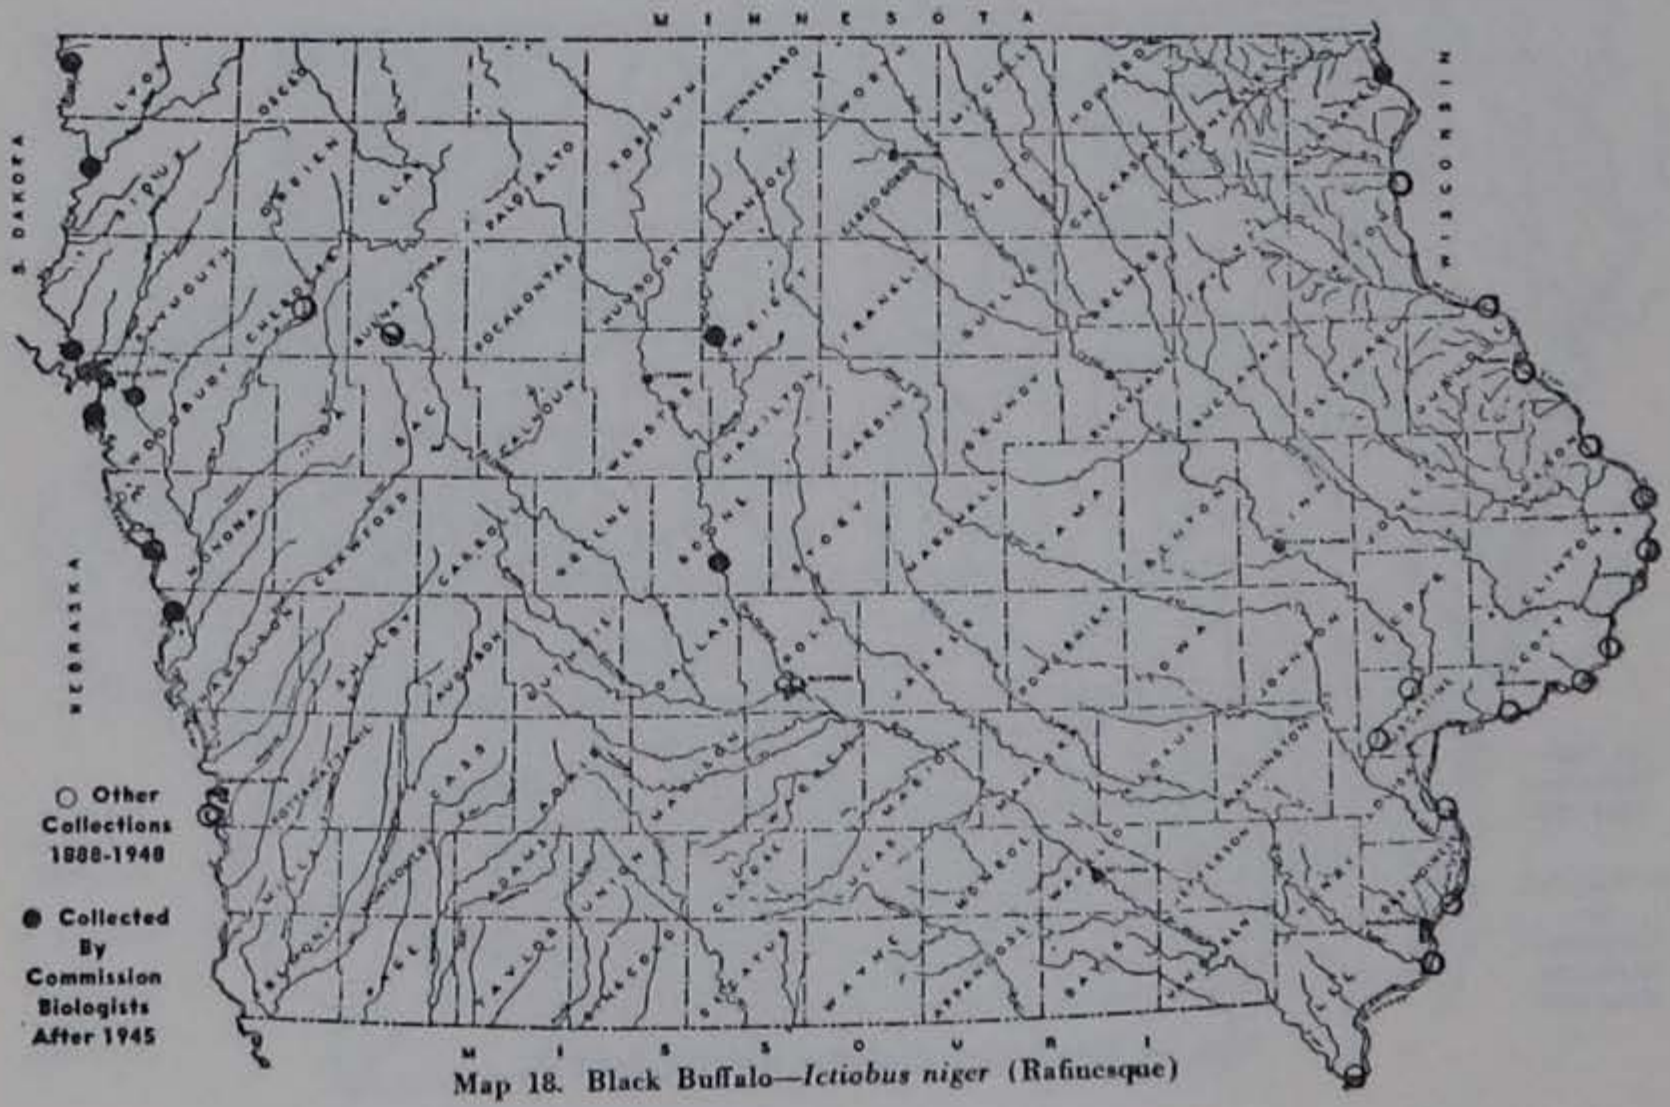 MINNESOTA
S. DAKOTA
WISCONSIN
NEBRASKA
LYON
OSCEOLA
KOSSUTH
WINNEBAGO
WORTH
MITCHELL
HOWARD
SIOUX
OBRIEN
CLAY
PALO ALTO
HANCOCK
CERRO GORDO
FLOYD
CHICKASAW
PLYMOUTH
CHEROKEE
BUENA VISTA
POCAHONTAS
HUMBOLDT
WRIGHT
FRANKLIN
BUTLER
BREMER
WOODBURY
IDA
SAC
CALHOUN
WEBSTER
HAMILTON
HARDIN
GRUNDY
BUCHANAN
JACKSON
MONONA
CRAWFORD
CARROLL
GREENE
BOONE
STORY
MARSHALL
TAMA
BENTON
LINN
JONES
CLINTON
HARRISON
SHELBY
AUDUBON
GUTHRIE
DALLAS
POLK
JASPER
POWESHIEK
IOWA
JOHNSON
CEDAR
SCOTT
MUSCATINE
POTTAWATTAMIE
CASS
ADAIR
MADISON
WARREN
MARION
MAHASKA
KEOKUK
WASHINGTON
MILLS
MONTGOMERY
ADAMS
UNION
CLARKE
LUCAS
MONROE
JEFFERSON
PAGE
TAYLOR
RINGGOLD
DECATUR
WAYNE
APPANOOSE
DAVIS
LEE
○ Other
Collections
1888-1948
● Collected
By
Commission
Biologists
After 1945
MISSOURI
Map 18. Black Buffalo—Ictiobus niger (Rafinesque)